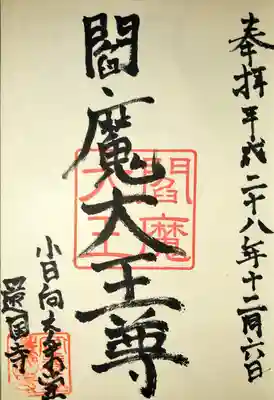 奉拝 平成二十八年十二月六日
閻魔大王尊
閻魔
大王
小日向大
還国寺